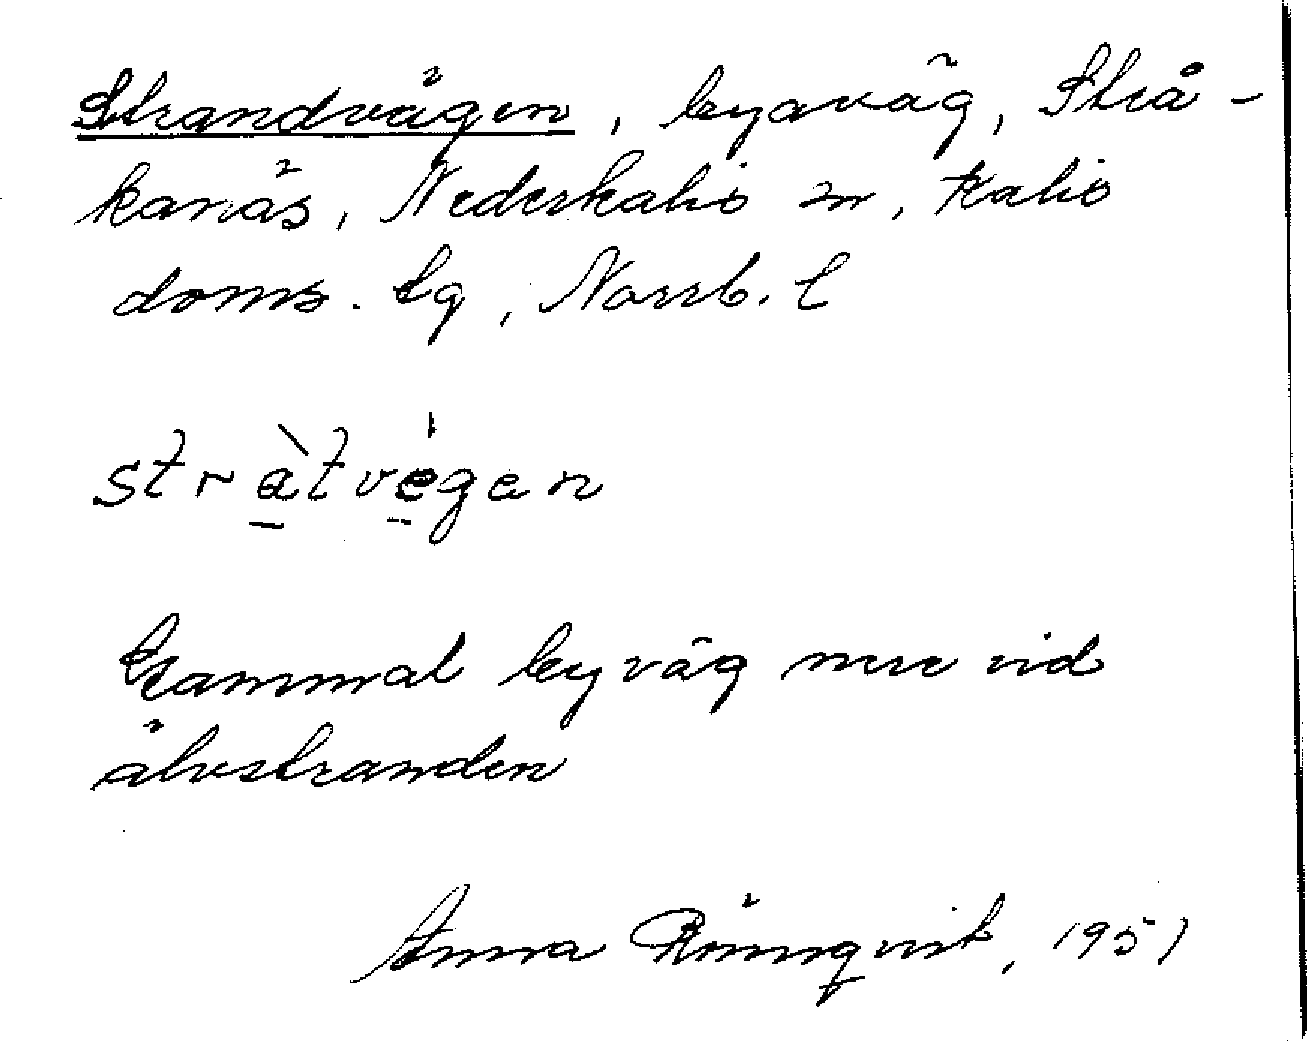 Strandvägen, byaväg, Strå-
kanäs, Nederkalix sn, Kalix
doms. lg, Norrb. l
stràtvégen
Gammal byväg nere vid
älvstranden
Anna Rönnqvist, 1951